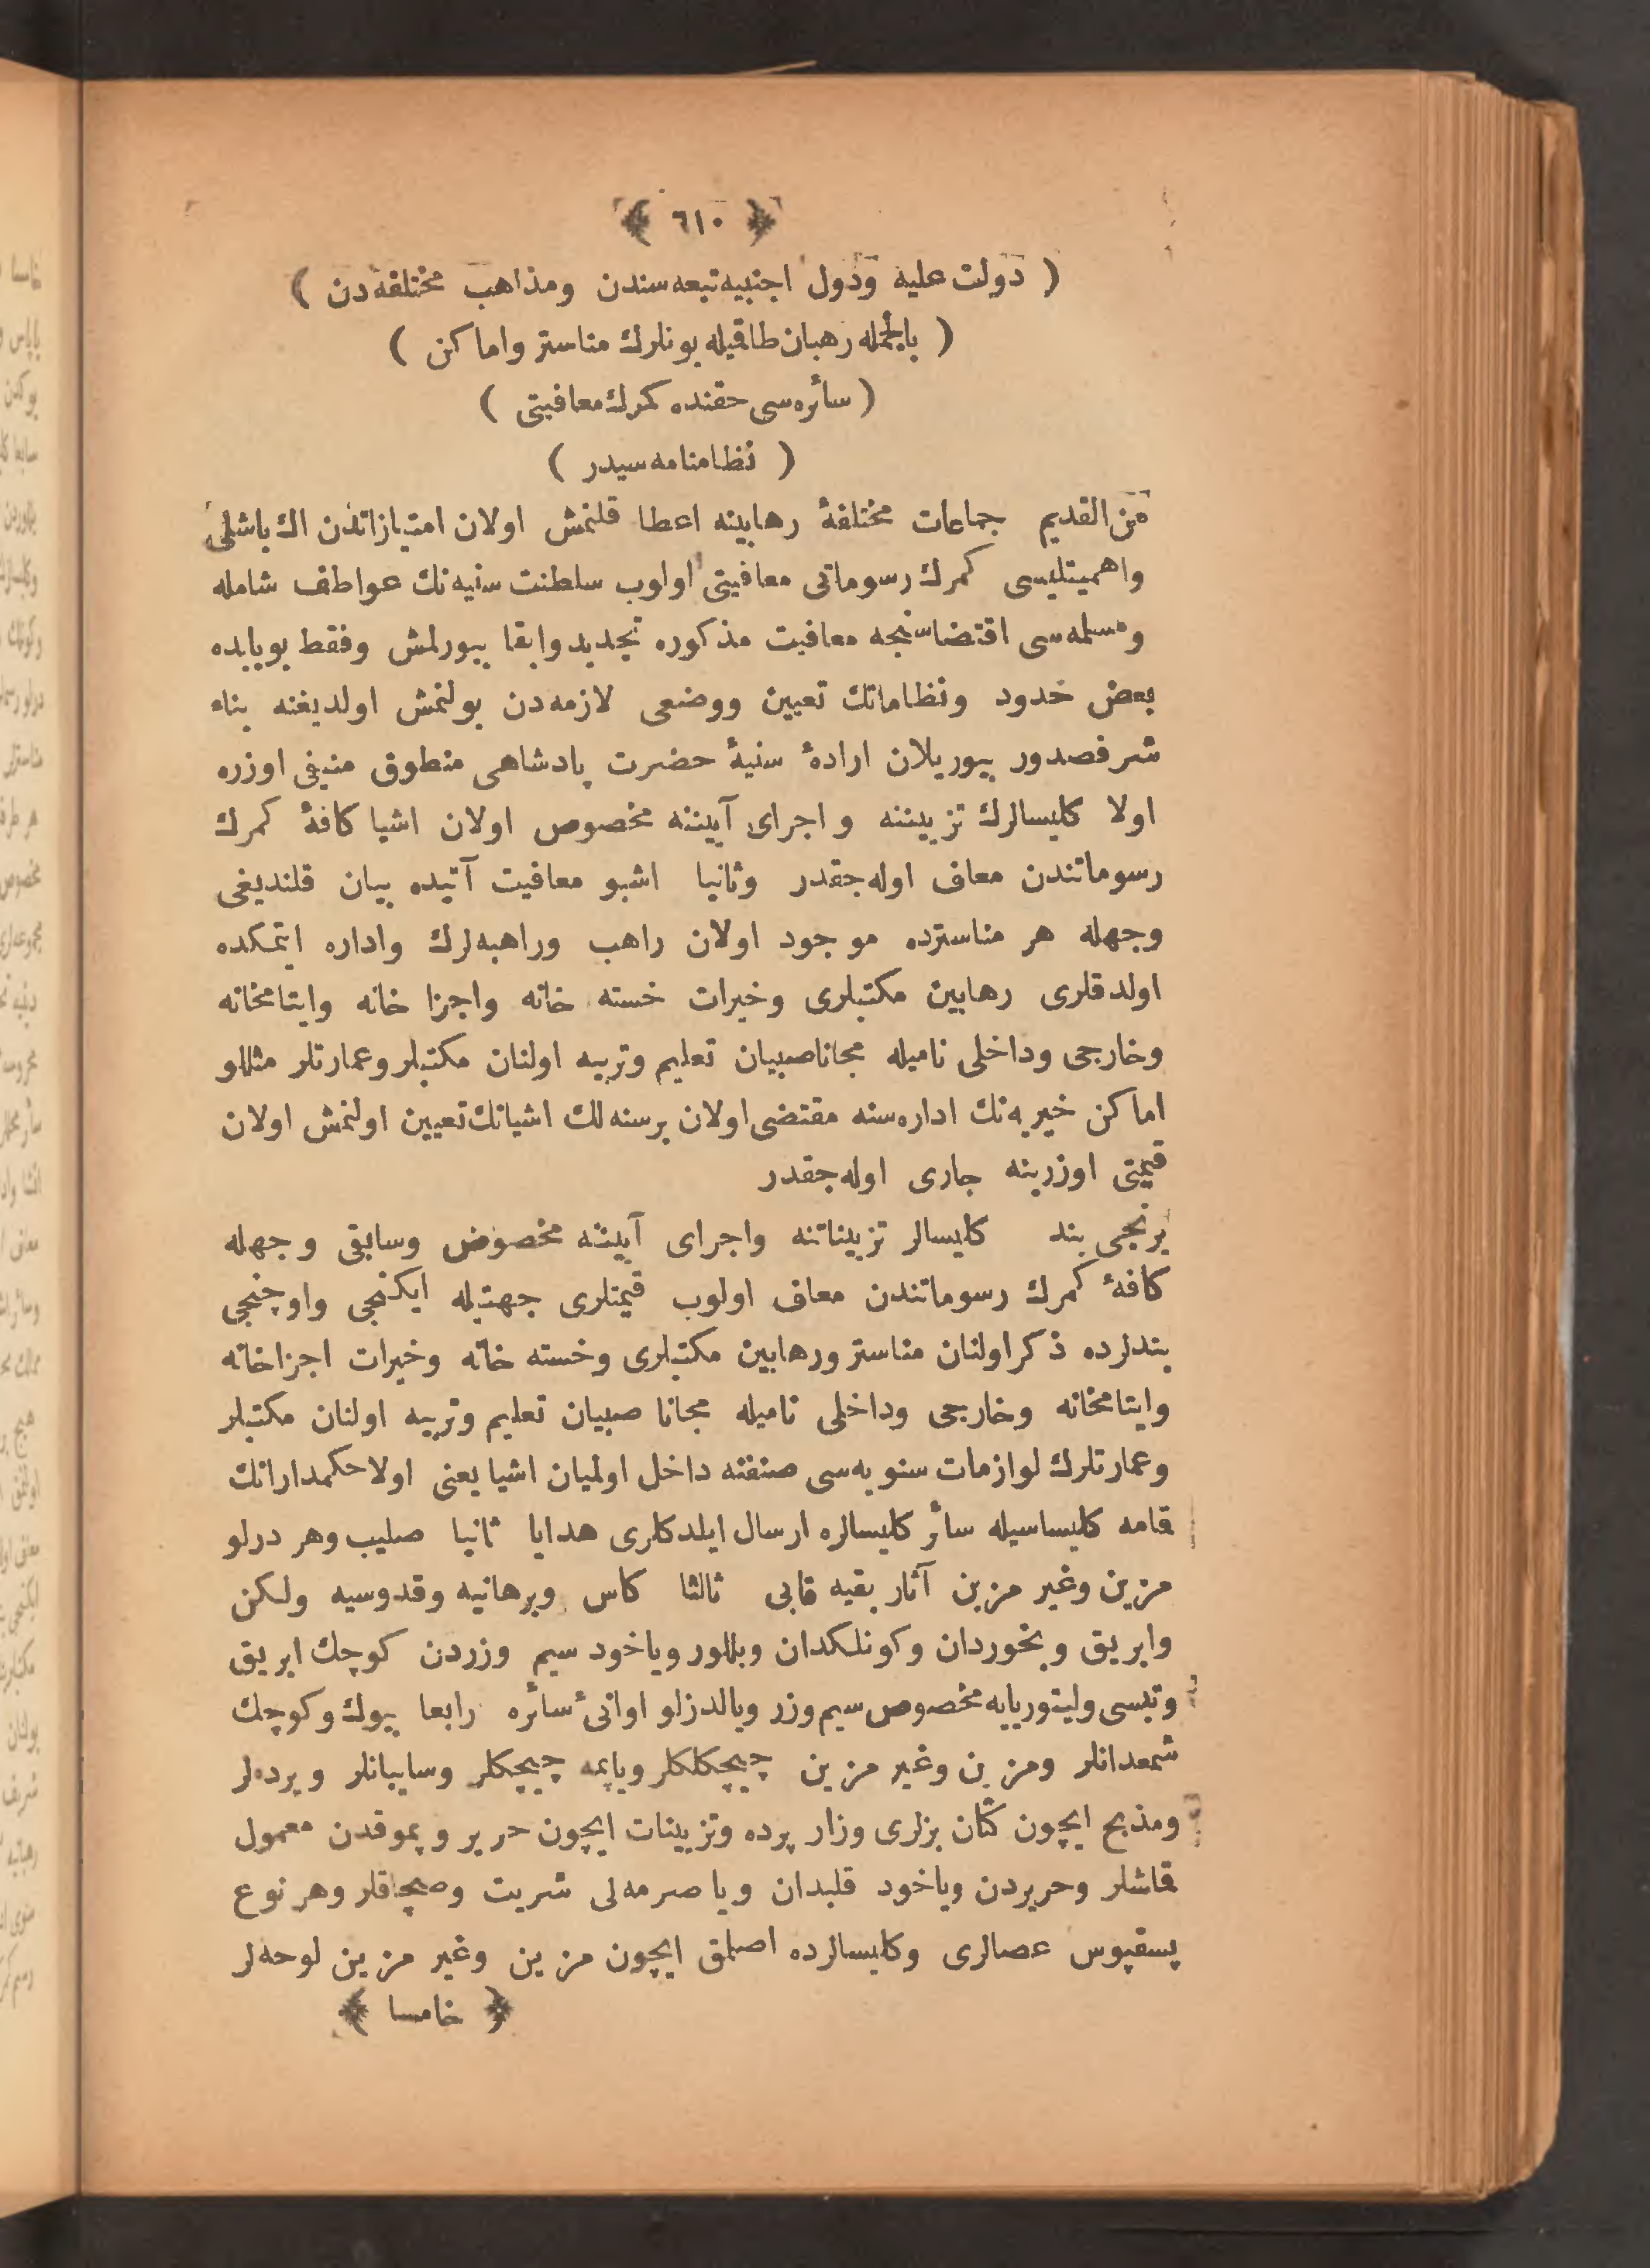 ٦١٠
( دولت علیه ودول اجنبیه تبعه سندن ومذاهب مختلفه دن )
( بالجمله رهبان طاقیله بونلرك مناستر واماكن )
( سائره سی حقنده كمرك معافیتی )
( نظامنامه سیدر )
من القدیم جماعات مختلفهٔ رهابینه اعطا قلنمش اولان امتیازاتدن اك باشلی
واهمیتلیسی كمرك رسوماتی معافیتی اولوب سلطنت سنیه نك عواطف شامله
ومسلمه سی اقتضاسنجه معافیت مذكوره تجدید وابقا بیورلمش وفقط بوبابده
بعض حدود ونظاماتك تعیین ووضعی لازمه دن بولنمش اولدیغنه بناء
شرفصدور بیوریلان ارادهٔ سنیهٔ حضرت پادشاهی منطوق منیفی اوزره
اولا كلیسالرك تزییننه و اجرای آییننه مخصوص اولان اشیا كافهٔ كمرك
رسوماتندن معاف اوله جقدر وثانیا اشبو معافیت آتیده بیان قلندیغی
وجهله هر مناسترده موجود اولان راهب وراهبه لرك واداره ایتمكده
اولدقلری رهابین مكتبلری وخیرات خسته خانه واجزا خانه وایتامخانه
وخارجی وداخلی نامیله مجانا صبیان تعلیم وتربیه اولنان مكتبلر وعمارتلر مثللو
اماكن خیریه نك اداره سنه مقتضی اولان برسنه لك اشیانك تعیین اولنمش اولان
قیمتی اوزرینه جاری اوله جقدر
برنجی بند كلیسالر تزییناتنه واجرای آییننه مخصوص وسابقی وجهله
كافهٔ كمرك رسوماتندن معاف اولوب قیمتلری جهتیله ایكنجی واوچنجی
بندلرده ذكر اولنان مناستر ورهابین مكتبلری وخسته خانه وخیرات اجزاخانه
وایتامخانه وخارجی وداخلی نامیله مجانا صبیان تعلیم وتربیه اولنان مكتبلر
وعمارتلرك لوازمات سنویه سی صنفنه داخل اولمیان اشیا یعنی اولا حكمدارانك
قامه كلیساسیله سائر كلیسالره ارسال ایلدكلری هدایا ثانیا صلیب وهر درلو
مزین وغیر مزین آثار بقیه قابی ثالثا كاس وبرهانیه وقدوسیه ولكن
وابریق وبخوردان وكونلكدان وبللور ویاخود سیم وزردن كوچك ابریق
وتبسی ولیتوریایه مخصوص سیم وزر ویالدزلو اوانیٔ سائره رابعا بیوك وكوچك
شمعدانلر ومزین وغیر مزین چیچكلكلر ویاپمه چیچكلر وسایبانلر وپرده لر
ومذبح ایچون كتان بزلری وزار پرده وتزیینات ایچون حریر وپموقدن معمول
قماشلر وحریردن ویاخود قلبدان ویا صرمه لی شریت وصچاقلر وهر نوع
پسقپوس عصالری وكلیسالرده اصلمق ایچون مزین وغیر مزین لوحه لر
خامسا